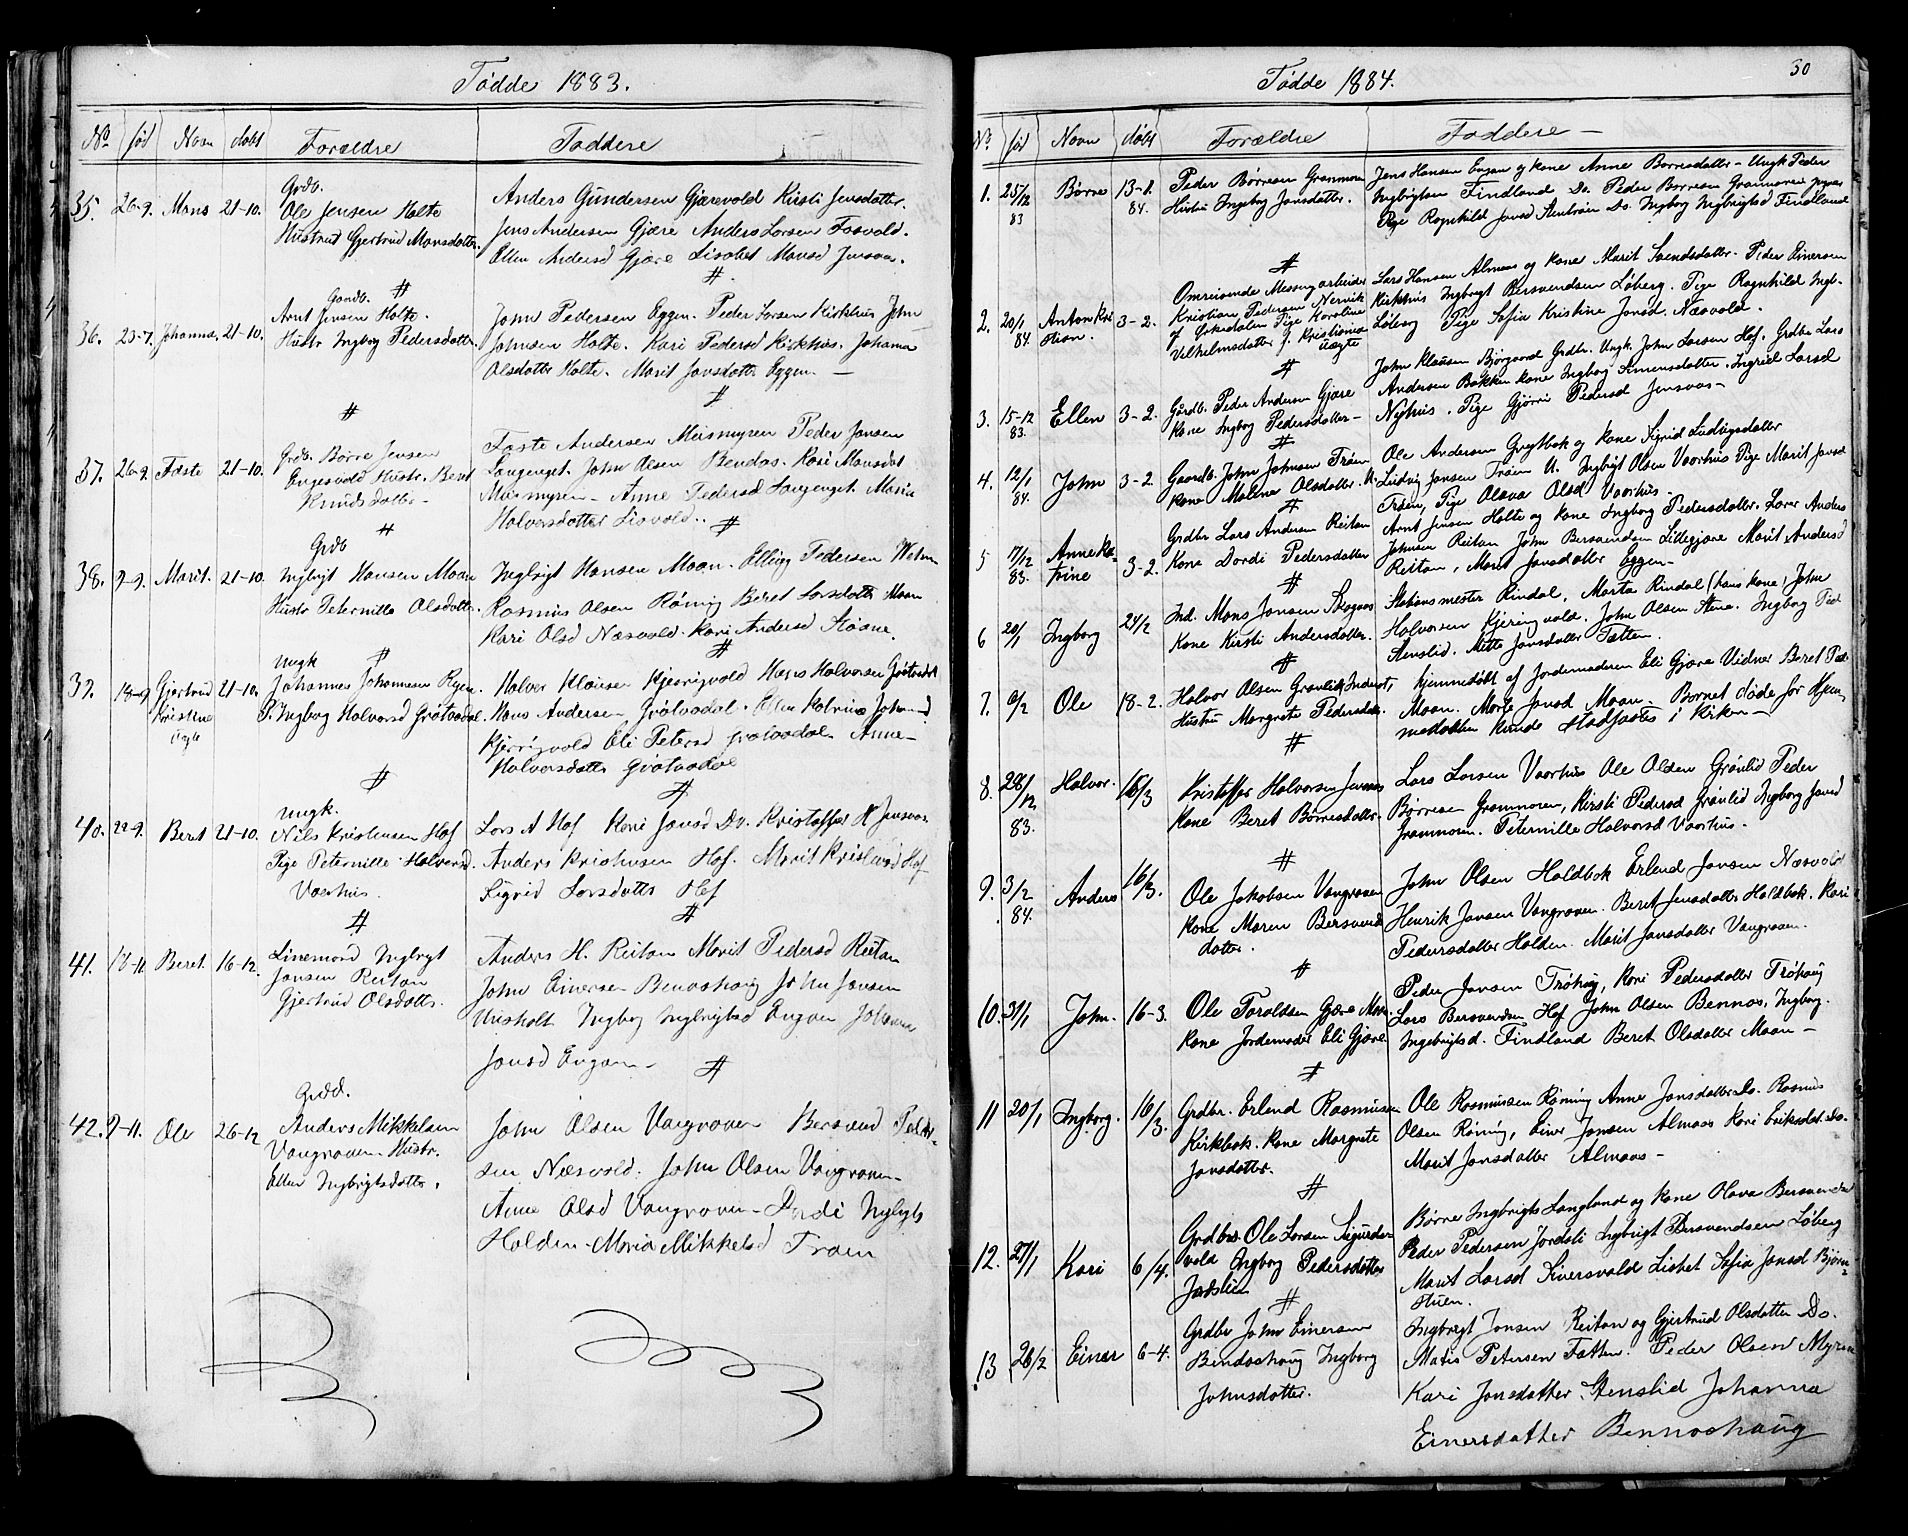 Fødde 1883.
No. fød Navn døbt Forældre Faddere
35. 26-9. Mons 21-10.
Grdb.
Ole Jensen Holte
Hustru Gjertrud Monsdatter.
Anders Gundersen Gjærevold Kirsti Jensdatter.
Jens Andersen Gjære Anders Larsen Fosvold.
Ellen Andersd Gjære Lisabet Monsd Jensaas.
36. 23-7. Johanna. 21-10.
Gaardb.
Arnt Jensen Holte.
Hustr Ingbor Pedersdatter.
John Pedersen Eggen. Peder Larsen Kirkhus John
Johnsen Holte. Kari Pedersd Kirkhus. Johanna
Olsdatter Holte. Marit Jonsdatter Eggen. —
37. 26-9. Faste 21-10.
Grdb. Børre Jensen
Engesvold Hustr. Beret
Knudsdatter —
Faste Andersen Meismyren Peder Jonsen
Langenget. John Olsen Bendos. Kari Monsdat
Meismyren — Anne Pedersd Langenget. Maria
Halversdatter Liavold.
38. 9-9. Marit. 21-10.
Grdb
Ingbrigt Hansen Moan
Hustr Peternille Olsdatter.
Ingbrigt Hansen Moan. Elling Pedersen
Rasmus Olsen Røning Beret Larsdatter Moan
Kari Olsd Næsvold. Kari Andersd Støane.
39. Gjertrud 21-10.
Kristine
Uægte
Ungk
Johannes Johannesen Ryen.
P. Ingborg Halvorsd Grøtvadal.
Halver Klausen Kjerrigvold Hans Halvorsen Grøtvadal
Hans Andersen Grøtvadal. Johannd
Kjerrigvold Eli Petersd Grøtvadal Anne
Halversdatter Grøtvadal
40. 22-9. Beret 21-10.
Ungk.
Nils Kristensen Hof
Pige Peternille Halversd.
Vaarhus.
Lars A Hof Kari Jonsd Do. Kristoffer H Jensvos
Anders Kristensen Hof. Marit Hof
Sigrid Larsdatter Hof
41. 18-11 Beret. 16-12.
Linemand Ingbrigt
Jonsen Reitan
Gjertrud Olsdatter.
Anders H. Reitan Marit Pedersd Reitan
John Einersen Benashaug John Jonsen
Husholt Ingbor Ingbrigtsd Engan Johanna
Jonsd Engan —
42. 9-11. Ole 26-12
Grdb.
Anders Mikkelsen
Vangrøven Hustr.
Ellen Ingbrigtsdatter.
John Olsen Vangrøven Bersvend Peder-
sen Næsvold. John Olsen Vangrøven.
Anne Olsd Vangrøven — Dordi Ingbrigts
Holden — Maria Mikkelsd Trøen
Fødde 1884.
30
No. fød Navn døbt Forældre Faddere —
1. 25/12 83 Børre 13-1. 84.
Peder Børresen Granmoren
Hustru Ingebor Jonsdatter.
Jens Hansen Engan og kone Anne Børresdatter — Ungk Peder
Ingbrigtsen Findland Do. Peder Børresen Granmoren
Pige Ragnhild Jonsd Do. Ingborg Ingbrigtsd Findland
2. 20/1 84. Anton Kri 3-2.
stian.
Omreisende Messingarbeider
Kristian Pedersen Nervik
af Ørkedalen Pige Karoline
Vilhelmsdatter f. Kristiania
Uægte
Lars Hansen Almaas og kone Marit Svendsdatter. Peder Einersen
Kirkhus Ingbrigt Bersvendsen Løberg. Pige Ragnhild Ingb-
Løberg Pige Sofia Kristine Jonsd. Næsvold.
3. 15-12 83. Ellen 3-2.
Gårdb. Peder Andersen Gjære
kone Ingbor Pedersdatter —
John Klausen Bjørgaard Grdbr. Ungk. John Larsen Hof. Grdbr Lars
Andersen Bakken kone Ingbor Simensdatter. Ingrid Larsd
Nyhus. Pige Gjørri Pedersd Jensvos —
4. 12/1 84. John 3-2
Gaardb. John Johnsen Trøen
kone Malena Olsdatter.
Ole Andersen Grytbak og kone Sigrid Ludvigsdatter
Ludvig Jonsen Trøen U. Ingbrigt Olsen Vaarhus Pige Marit Jonsd
Trøen, Pige Olava Olsd Vaarhus.
5 17/12 83. Anne Ka- 3-2.
trine
Grdbr Lars Andersen Reitan
Kone Dordi Pedersdatter
Arnt Jensen Holte og kone Ingborg Pedersdatter. Larer Anders
Johnsen Reitan John Bersvendsen Lillegjære Marit Andersd
Reitan, Marit Jonsdatter Eggen —
6 20/1 Ingborg 24/2
Ind. Mons Jonsen Skogaas
Kone Kirsti Andersdatter.
Stationsmester Rindal, Marta Rindal (hans kone) John
Halvorsen Kjeringvold. John Olsen Stene. Ingborg Ped
Stenslid. Mette Jonsdatter Fætten.
7. 9/2 Ole 18-2.
Halvor Olsen Grønlie, Inderst,
Hustru Margrete Pedersdatter.
hjemmedøbt af Jordemoderen Eli Gjære Vidner Beret Ped
Moan. Marta Jonsd Moan. Barnet døde før Hjem
medaaben kunde Stadfæstes i Kirken —
8. 28/12. 83. Halvor. 16/3
Kristoffer Halvorsen Jensvos
kone Beret Børresdatter.
Lars Larsen Vaarhus Ole Olsen Grønlid Peder
Børresen Granmoren, Kirsti Pedersd Grønlid Ingborg Jonsd
Granmoren. Peternille Halvorsd Vaarhus.
9. 3/2 84. Anders 16/3.
Ole Jakobsen Vangrøven
kone Maren Bersvend
datter.
John Olsen Haldbak Erlend Jonsen Næsvold
Henrik Jonsen Vangrøven. Beret Jensdatter Haldbak. Kari
Pedersdatter Holden. Marit Jonsdatter Vangrøven.
10. 31/1 John. 16-3.
Ole Toraldsen Gjære
kone Jordemoder Eli Gjære
Peder Jonsen Trøhaug, Kari Pedersdatter Trøhaug
Lars Bersvendsen Hof John Olsen Bennos, Ingborg.
Ingebrigtsd. Findland Beret Olsdatter Moan —
11 20/1 Ingborg. 16/3.
Grdbr. Erlend Rasmusen
Kirkbak. kone Margrete
Jonsdatter.
Ole Rasmussen Røning Anne Jonsdatter Do. Rasmus
Olsen Røning, Einer Jonsen Almaas Kari Eriksdat. Do.
Marit Jonsdatter Almaas —
12. 27/1 Kari 6/4.
Grdbr. Ole Larsen Sigurds-
vold Ingborg Pedersdatter
Jordslien
Børre Ingbrigts Langland og kone Olava Bersvendsd
Peder Pedersen Jordsli Ingbrigt Bersvendsen Løberg
Marit Larsd Siversvold Lisbet Sofia Jonsd Bjørn-
stuen.
13. 26/2 Einer 6-4.
Grdbr John Einersen
Bendoshaug Ingborg
Johnsdatter.
Ingbrigt Jonsen Reitan og Gjertrud Olsdatter Do.
Matis Petersen Fætten. Peder Olsen Myren
Kari Jonsdatter. Stenslid Johanna
Einersdatter Bennoshaug